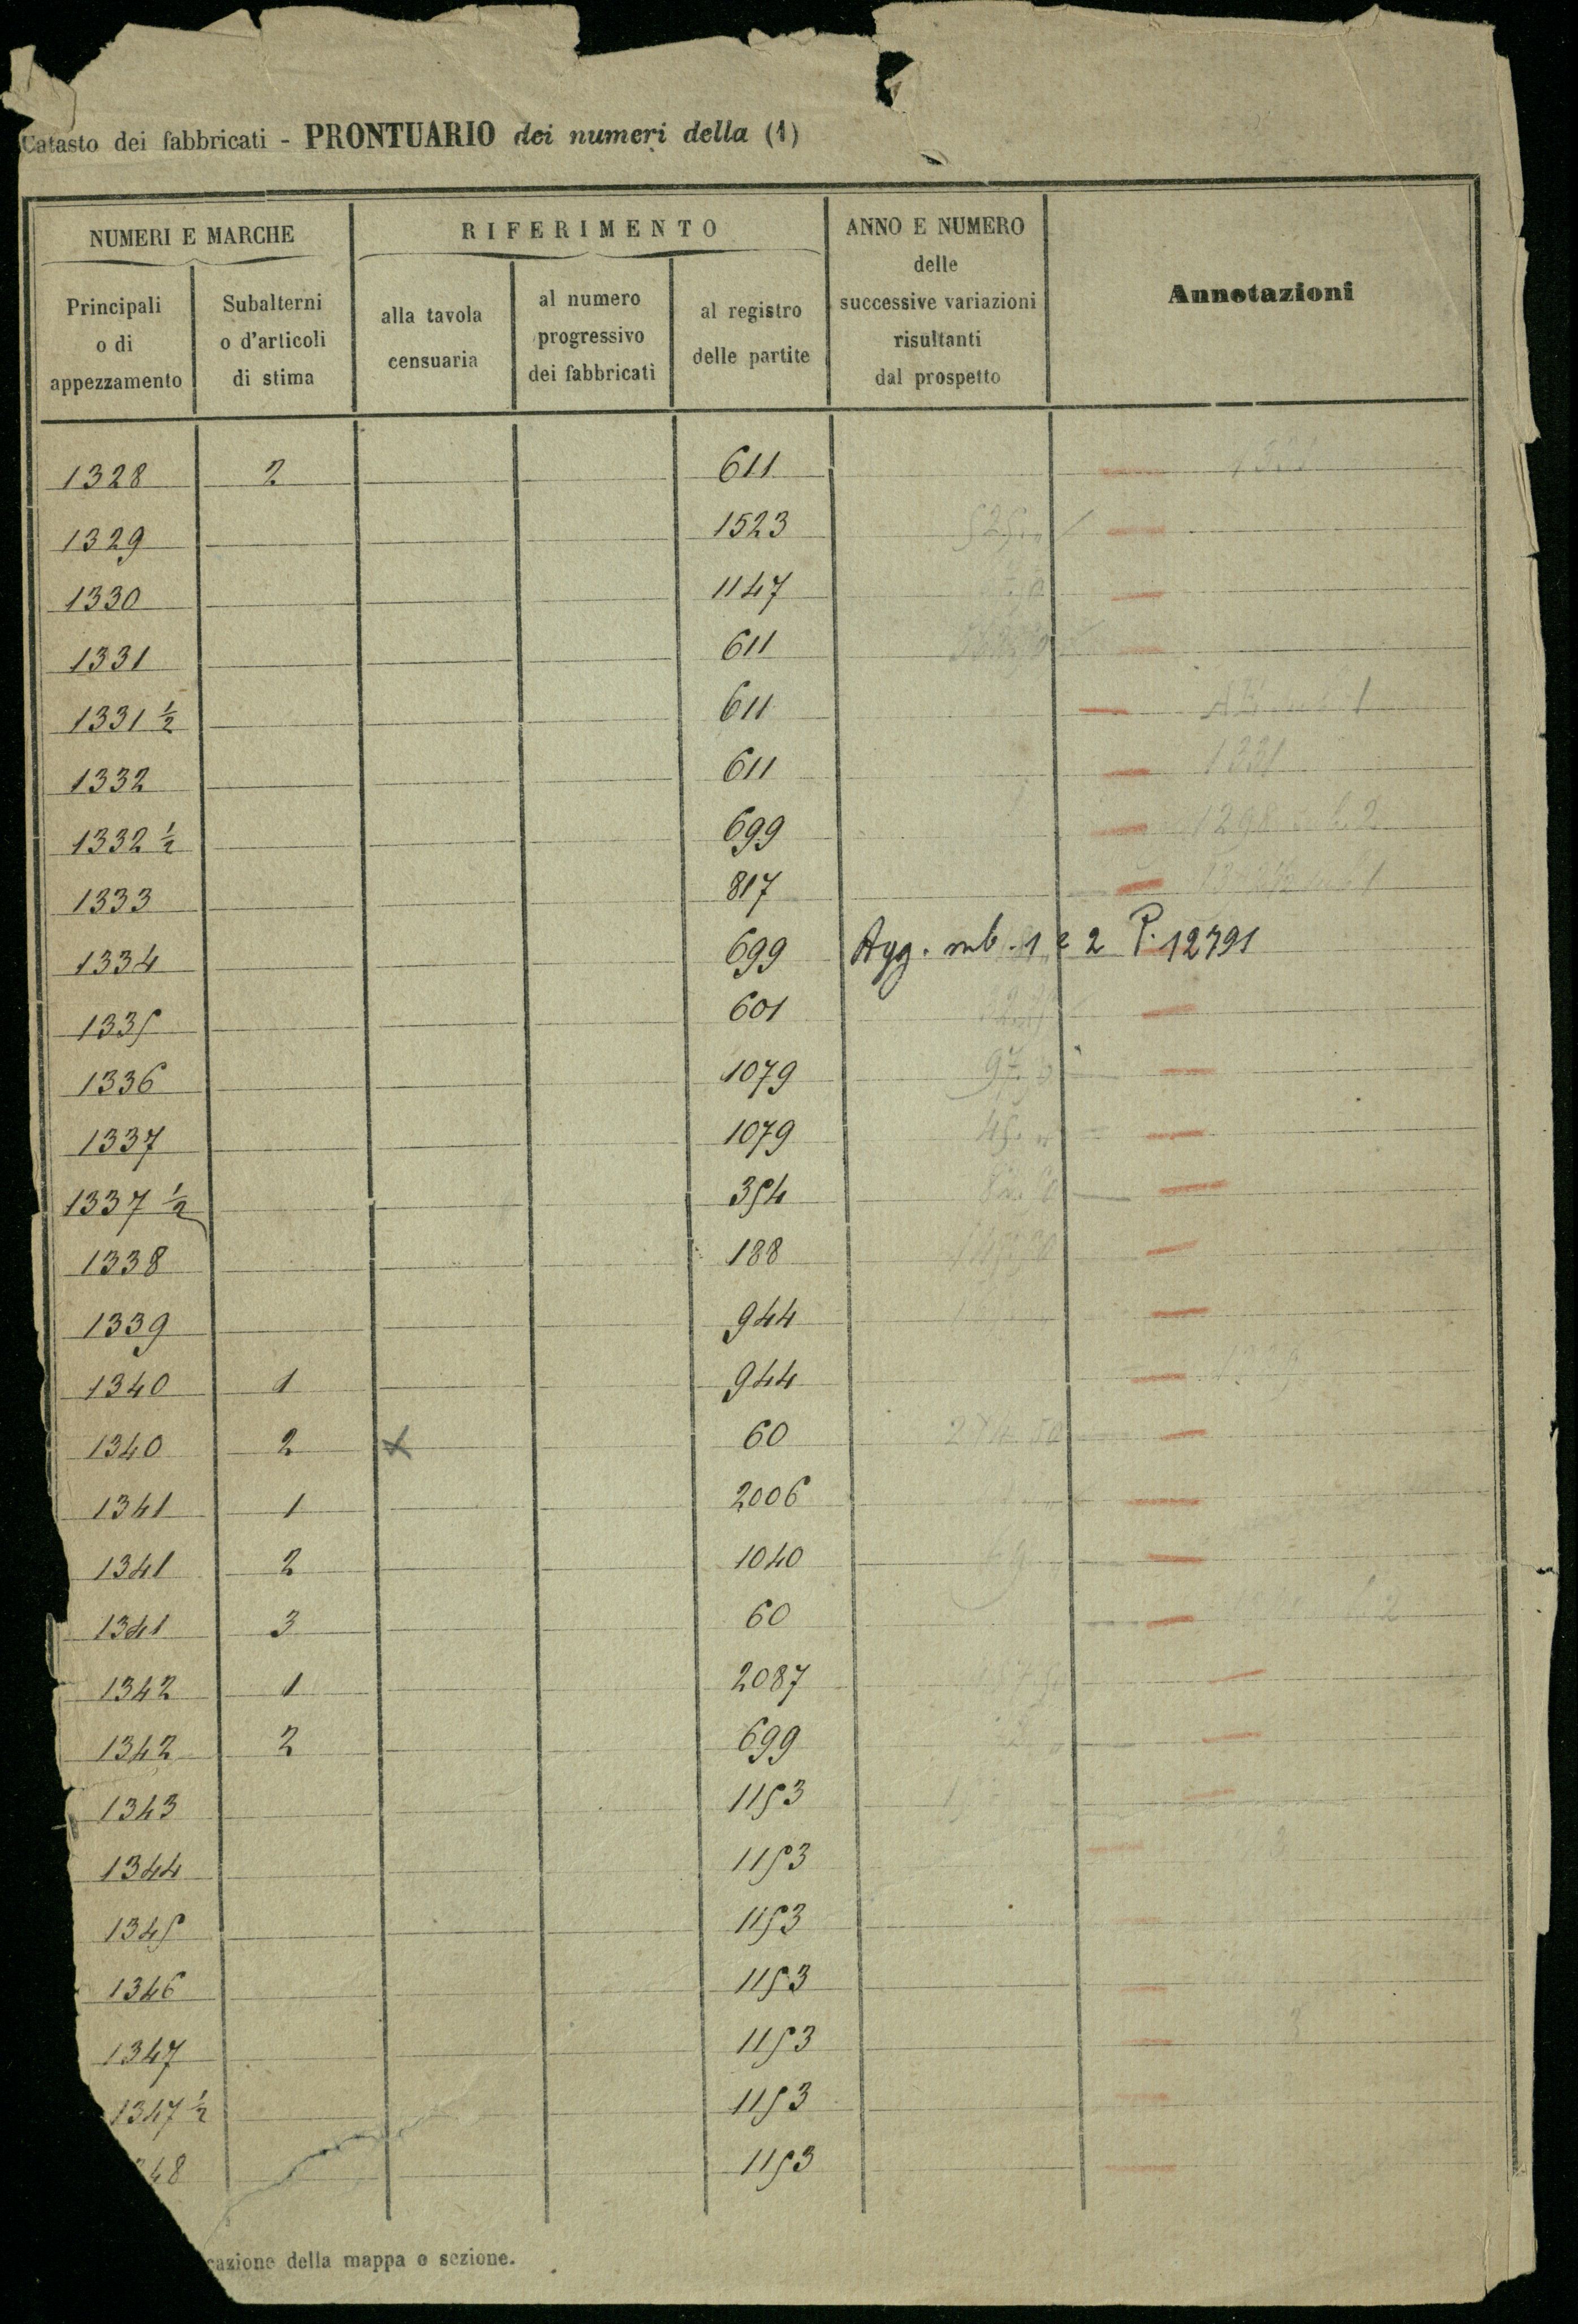 Catasto dei fabbricati - PRONTUARIO dei numeri della (1)
NUMERI E MARCHE
RIFERIMENTO
ANNO E NUMERO
delle
successive variazioni
risultanti
dal prospetto
Annotazioni
Principali
o di
appezzamento
Subalterni
o d'articoli
di stima
alla tavola
censuaria
al numero
progressivo
dei fabbricati
al registro
delle partite
1328 2 611
1329 1523
1330 1147
1331 611
1331 1/2 611
1332 611 1331
1332 1/2 699 1298 2
1333 817
1334 699 Agg. sub. 1 e 2 P. 12791
1335 601
1336 1079
1337 1079
1337 1/2 354
1338 188
1339 944
1340 1 944
1340 2 x 60
1341 1 2006
1341 2 1040
1341 3 60
1342 1 2087
1342 2 699
1343 1153
1344 1153
1345 1153
1346 1153
1347 1153
1347 1/2 1153
48 1153
cazione della mappa o sezione.